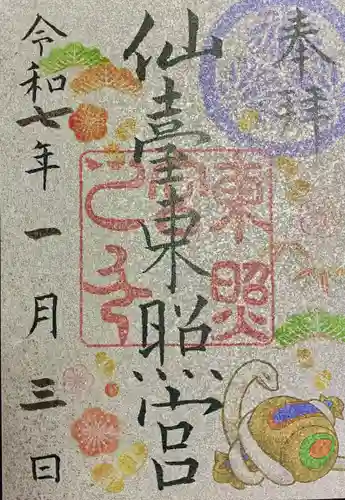 奉拝
仙臺東照宮
東照
令和七年一月三日